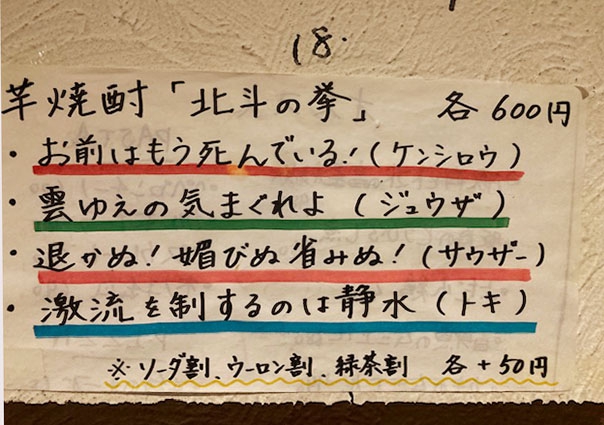 18.
芋焼酎「北斗の拳」 各600円
・お前はもう死んでいる!(ケンシロウ)
・雲ゆえの気まぐれよ(ジュウザ)
・退かぬ!媚びぬ省みぬ!(サウザー)
・激流を制するのは静水(トキ)
※ソーダ割、ウーロン割、緑茶割 各+50円